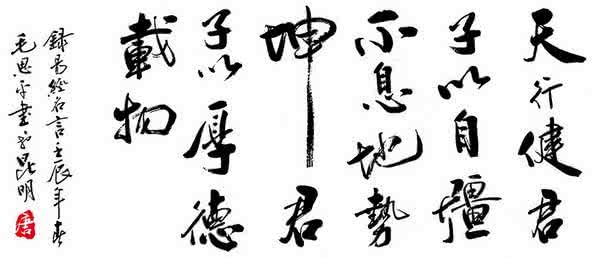 天行健君
子以自彊
不息地勢
坤君
子以厚德
載物
錄易經名言壬辰年春
毛思平書於昆明